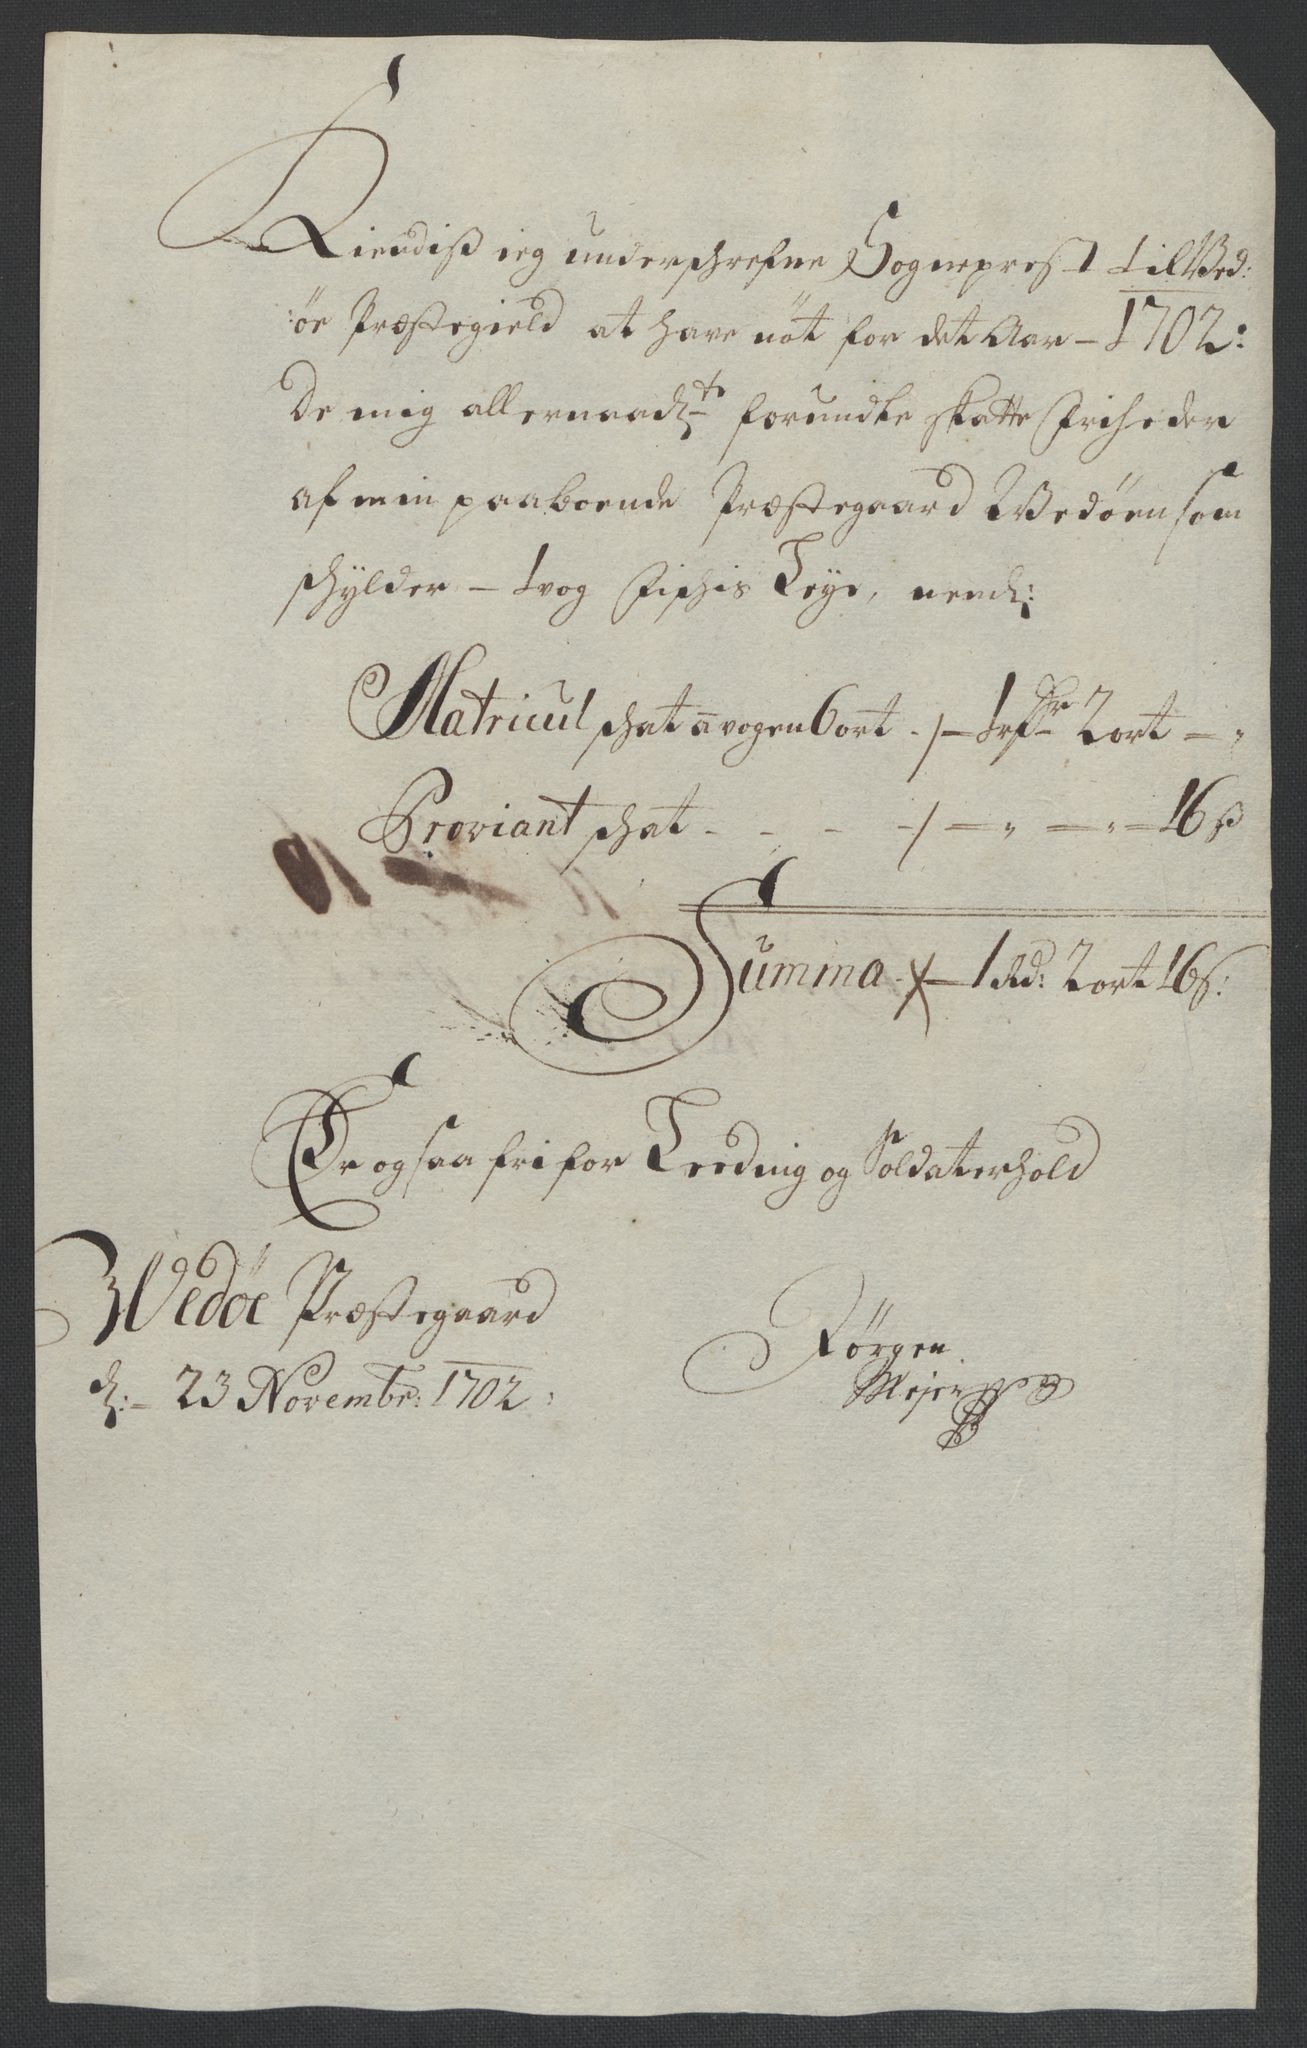 Kiendiß ieg underschrefne Sogneprest til Wed:
:öe Præstegield at have nöt for det Aar – 1702:
De mig allernaadte forundte skatte Friheder
af min paaboende Præstegaard Wedöen som
schylder – 1 vog Fischis Leye, neml:
Matricul schat a vogen 6 ort ./– 1 rdr 2 ort – "
Proviant schat - - - -/– " – " – 16 ß
Summa ./– 1 Rd: 2 ort 16 ß:
Er og saa fri for Leeding og Soldaterhold
Wedöe Præstegaard
d: – 23 Novembr: 1702:
Jörgen
Mejer